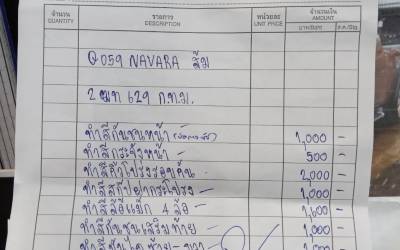 จำนวน รายการ หน่วยละ จำนวนเงิน
QUANTITY DESCRIPTION UNIT PRICE AMOUNT
Q059 NAVARA ส้ม
2ฒท 629 ก.ท.ม.
ทำสีกันชนหน้า 1,000 -
ทำสีกระจังหน้า - 500 -
ทำสีคิ้วโป่งรอบคัน 2,000 -
ทำสีสกู๊ปฝากระโปรง - 1,000 -
ทำสีแม็ก 4 ล้อ -
ทำสีกันชนเสริมท้าย - 1,000 -